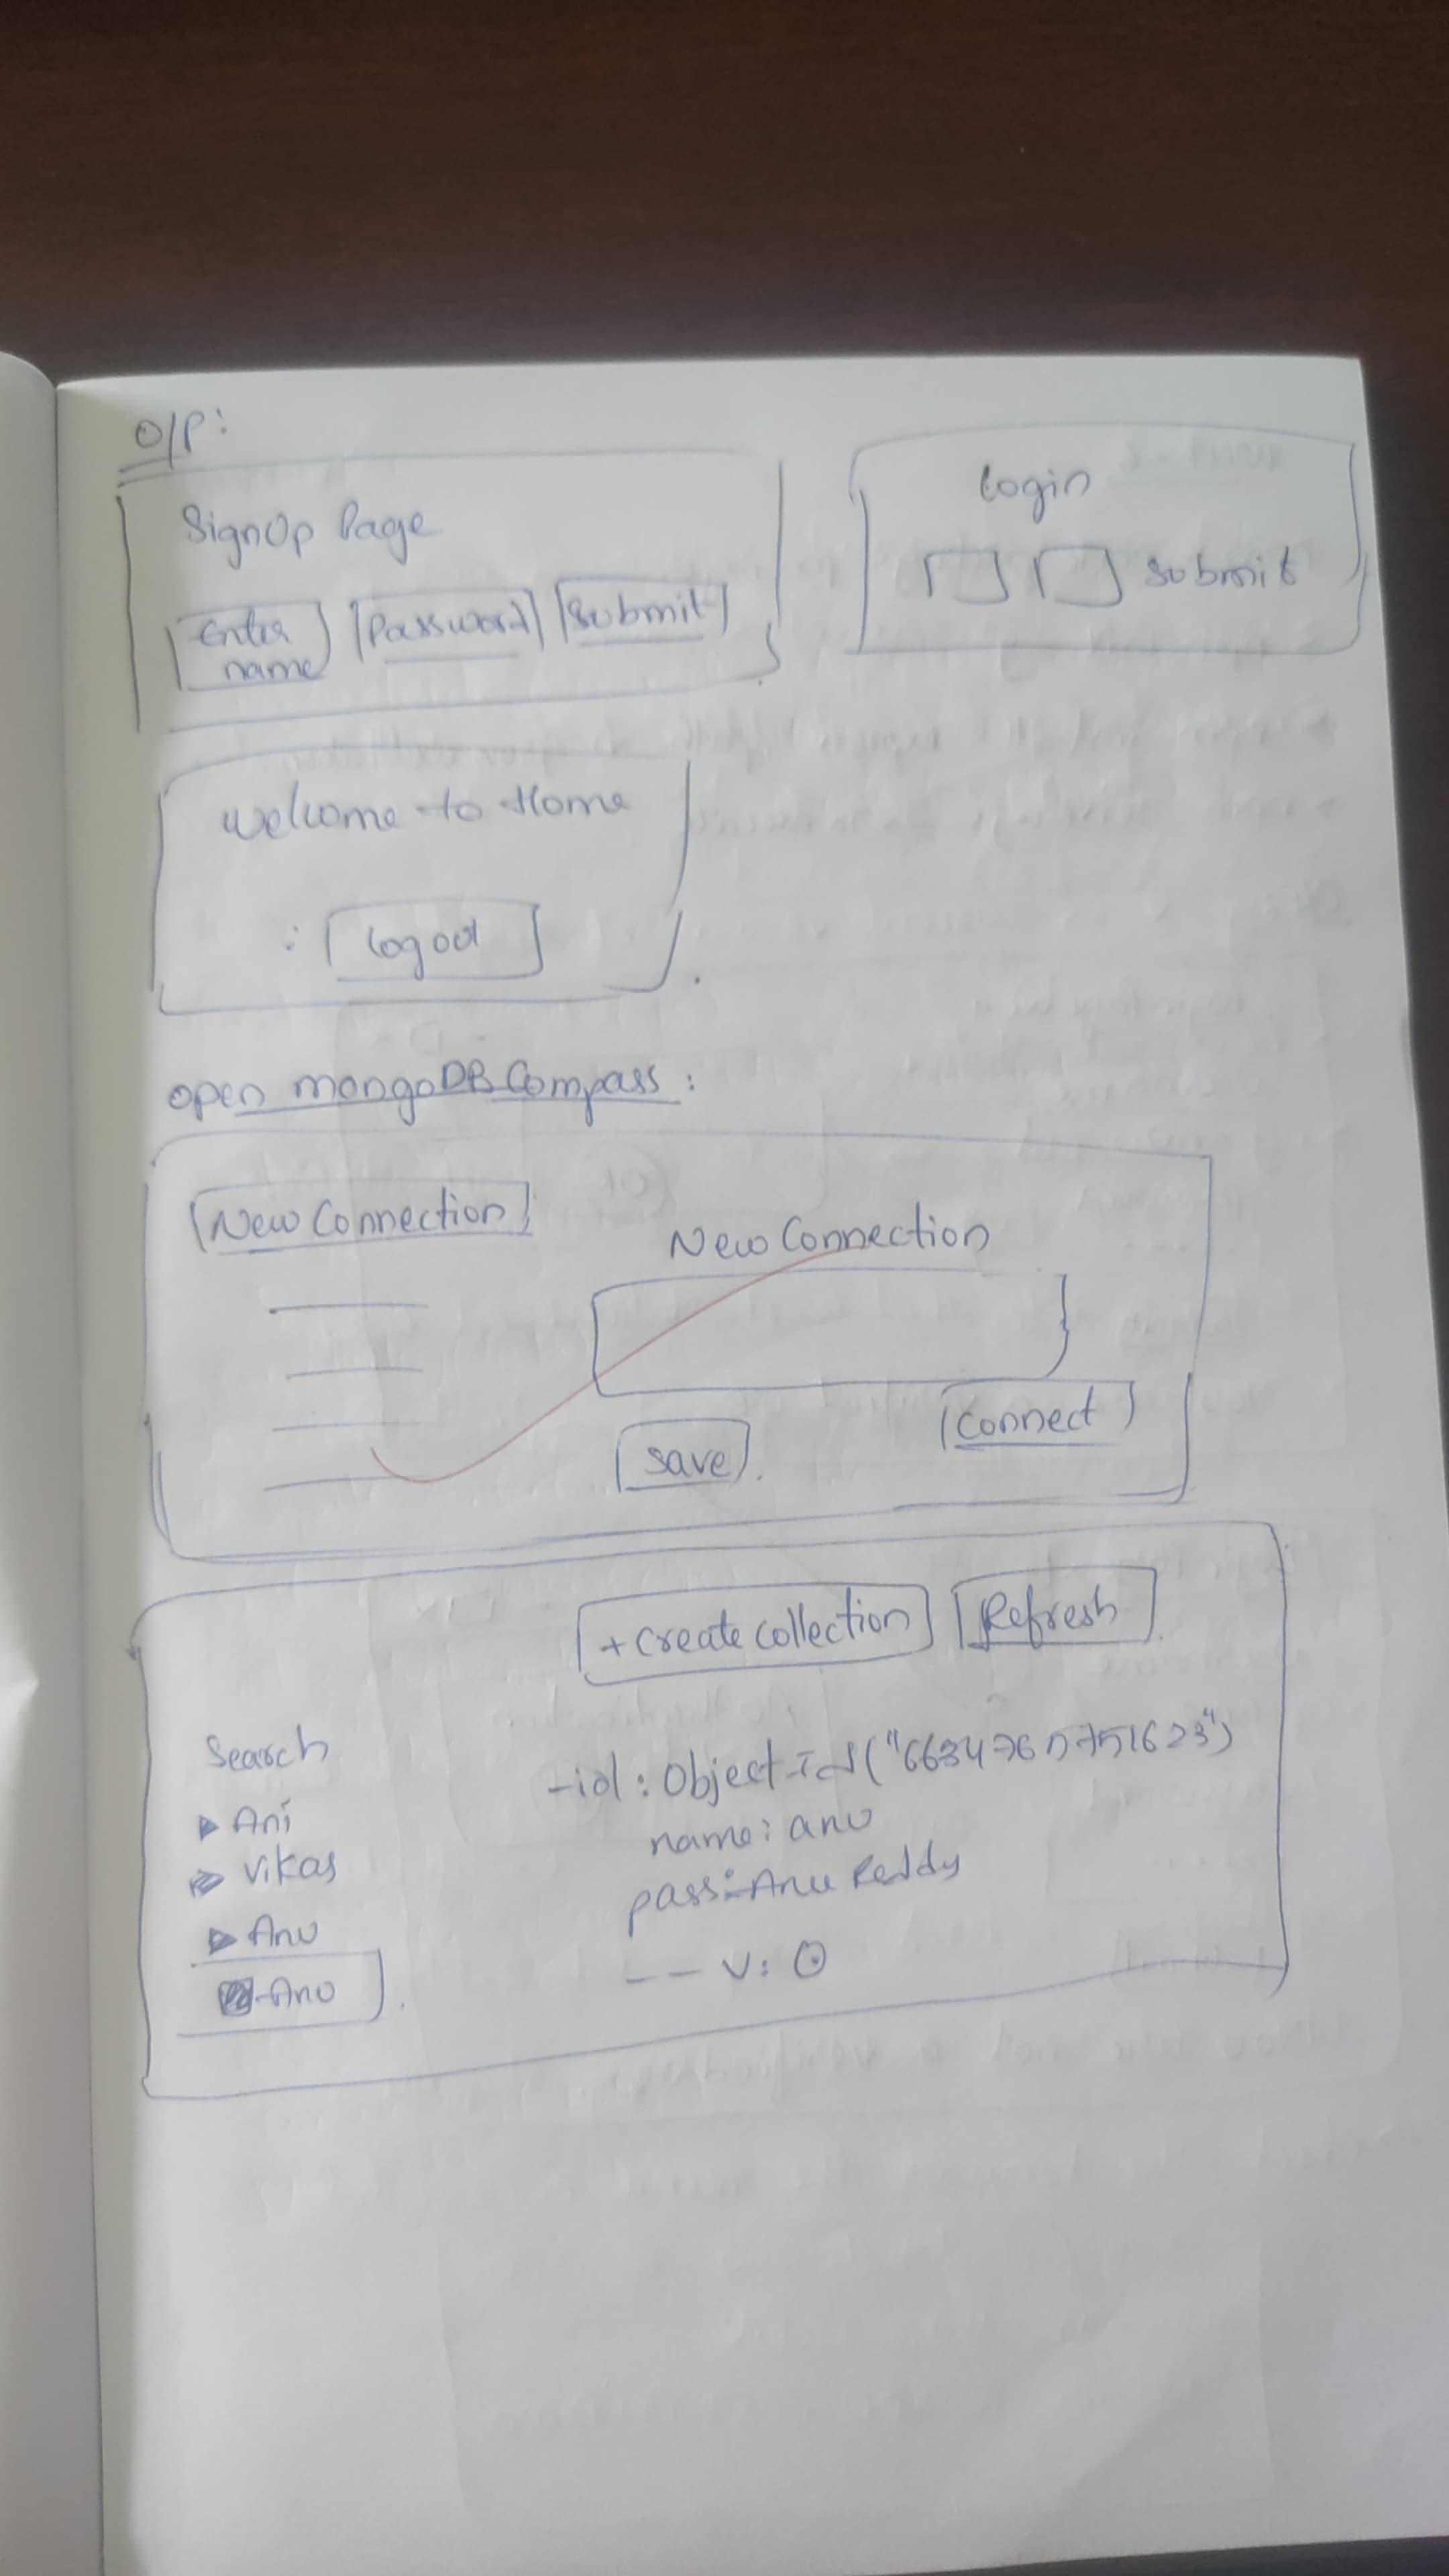 O/P:
SignUp Page
Enter name Password Submit
Login
Submit
Welcome to Home
: logout
open mongoDB Compass :
New Connection
New Connection
Connect
Save
+ Create collection Refresh
Search
▶ Ani
▶ Vikas
▶ Anu
Anu
-id : Object Id("
name : anu
pass : Anu Reddy
-- v : 0